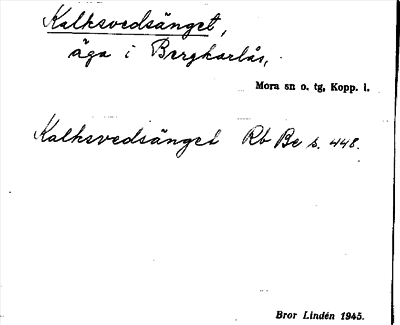 Kalksvedsänget,
äga i Bergkarlås,
Mora sn o. tg, Kopp. l.
Kalksvedsänget Rb Be s. 448.
Bror Lindén 1945.